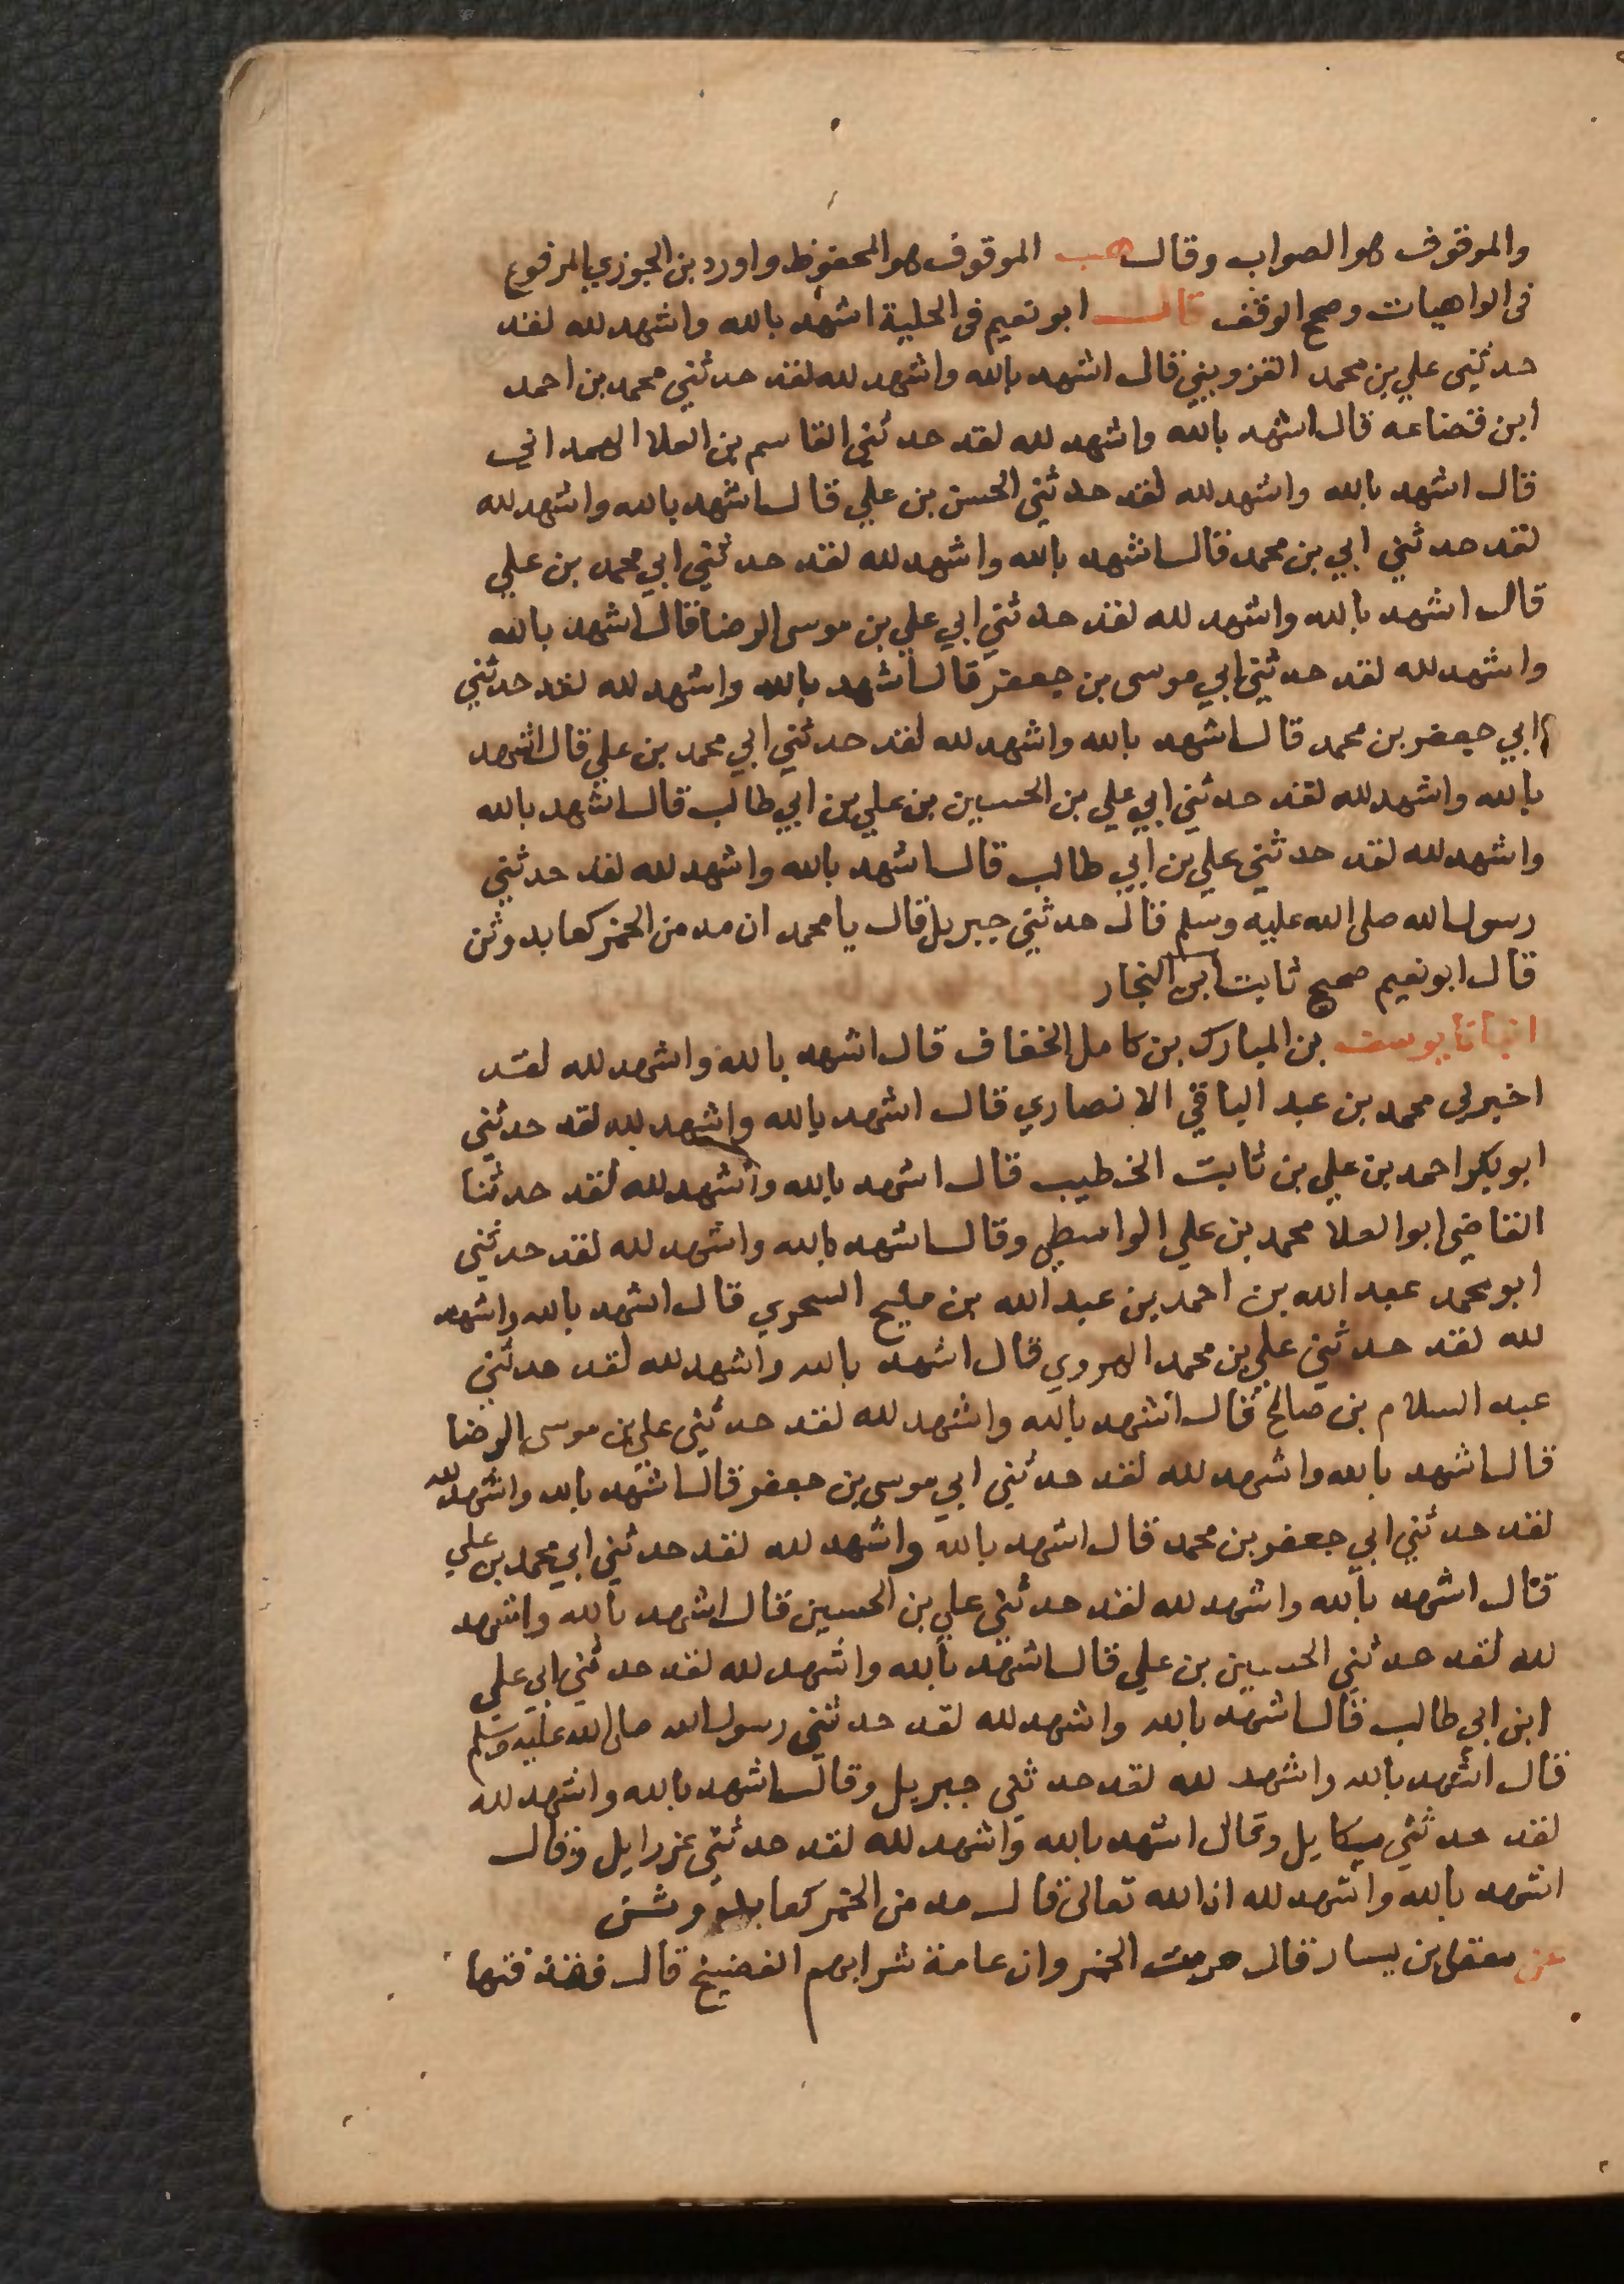 والموقوف هو الصواب وقال هب الموقوف هو المحفوظ واورد بن الجوزي المرفوع
فى الواهيات وصح الوقف قال ابو نعيم فى الحلية اشهد بالله واشهد لله لقد
حدثنى علي بن محمد القزويني قال اشهد بالله واشهد لله لقد حدثني محمد بن احمد
ابن قضاعه قال اشهد بالله واشهد لله لقد حدثني القاسم بن العلا الهمداني
قال اشهد بالله واشهد لله لقد حدثني الحسن بن علي قال اشهد بالله واشهد لله
لقد حدثني ابي بن محمد قال اشهد بالله واشهد لله لقد حدثني ابي محمد بن علي
قال اشهد بالله واشهد لله لقد حدثني ابي علي بن موسى الرضا قال اشهد بالله
واشهد لله لقد حدثني ابي موسى بن جعفر قال اشهد بالله واشهد لله لقد حدثني
ابي جعفر بن محمد قال اشهد بالله واشهد لله لقد حدثني ابي محمد بن علي قال اشهد
بالله واشهد لله لقد حدثني ابي علي بن الحسين بن علي بن ابي طالب قال اشهد بالله
واشهد لله لقد حدثني علي بن ابي طالب قال اشهد بالله واشهد لله لقد حدثني
رسول الله صلى الله عليه وسلم قال حدثني جبريل قال يا محمد ان مدمن الخمر كعابد وثن
قال ابو نعيم صحيح ثابت ابن النجار
انبانا يوسف بن المبارك بن كامل الخفاف قال اشهد بالله واشهد لله لقد
اخبرني محمد بن عبد الباقي الانصاري قال اشهد بالله واشهد لله لقد حدثني
ابو بكر احمد بن علي بن ثابت الخطيب قال اشهد بالله واشهد لله لقد حدثنا
القاضي ابو العلا محمد بن علي الواسطي وقال اشهد بالله واشهد لله لقد حدثني
ابو محمد عبد الله بن احمد بن عبد الله بن مليح السحري قال اشهد بالله واشهد
لله لقد حدثني علي بن محمد الهروي قال اشهد بالله واشهد لله لقد حدثني
عبد السلام بن صالح قال اشهد بالله واشهد لله لقد حدثني علي بن موسى الرضا
قال اشهد بالله واشهد لله لقد حدثني ابي موسى بن جعفر قال اشهد بالله واشهد لله
لقد حدثني ابي جعفر بن محمد قال اشهد بالله واشهد لله لقد حدثني ابي محمد بن علي
قال اشهد بالله واشهد لله لقد حدثني علي بن الحسين قال اشهد بالله واشهد
لله لقد حدثني الحسين بن علي قال اشهد بالله واشهد لله لقد حدثني ابي علي
ابن ابي طالب قال اشهد بالله واشهد لله لقد حدثني رسول الله صلى الله عليه وسلم
قال اشهد بالله واشهد لله لقد حدثني جبريل وقال اشهد بالله واشهد لله
لقد حدثني ميكايل وقال اشهد بالله واشهد لله لقد حدثني عزرايل وقال
اشهد بالله واشهد لله ان الله تعالى قال مدمن الخمر كعابد وثن
عن معقل بن يسار قال حرمت الخمر وان عامة شرابهم الفضيخ قال فقذفتها